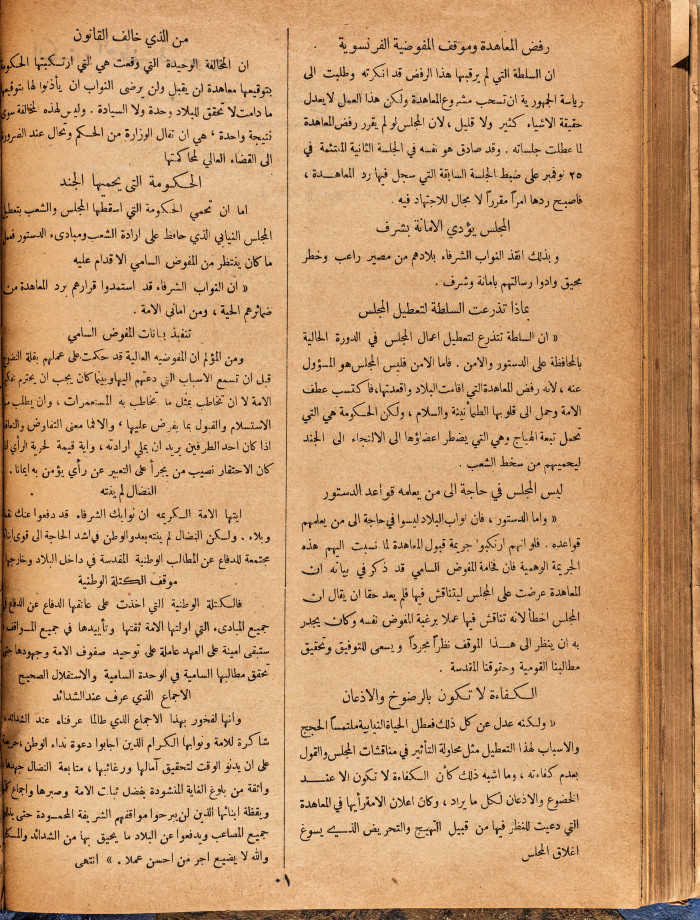 رفض المعاهدة وموقف المفوضية الفرنسوية
ان السلطة التي لم يرقيها هذا الرفض قد انكرته وطلبت الى
رياسة الجمهورية ان تسحب مشروع المعاهدة ولكن هذا العمل لا يعدل
حقيقة الاشياء كثير ولا قليل ، لان المجلس لو لم يقرر رفض المعاهدة
لما عطلت جلساته . وقد صادق هو نفسه في الجلسة الثانية الملتئمة في
٢٥ نوفمبر على ضبط الجلسة السابقة التي سجل فيها رد المعاهدة ،
فاصبح ردها امراً مقرراً لا مجال للاجتهاد فيه .
المجلس يؤدي الامانة بشرف
و بذلك انقذ النواب الشرفاء بلادهم من مصير راعب وخطر
محيق وادوا رسالتهم بامانة وشرف .
بماذا تذرعت السلطة لتعطيل المجلس
« ان السلطة تتذرع لتعطيل اعمال المجلس في الدورة الحالية
بالمحافظة على الدستور والامن . فاما الامن فليس المجلس هو المسؤول
عنه ، لانه رفض المعاهدة التي اقامت البلاد واقعدتها، فاكتسب عطف
الامة وحمل الى قلوبها الطمأنينة والسلام ، ولكن الحكومة هي التي
تحمل تبعة الهياج وهي التي يضطر اعضاؤها الى الالتجاء الى الجند
ليحميهم من سخط الشعب .
ليس المجلس في حاجة الى من يعلمه قواعد الدستور
« واما الدستور ، فان نواب البلاد ليسوا في حاجة الى من يعلمهم
قواعده . فلو انهم ارتكبوا جريمة قبول المعاهدة لما نسبت اليهم هذه
الجريمة الوهمية فان فخامة المفوض السامي قد ذكر في بيانه ان
المعاهدة عرضت على المجلس ليتناقش فيها فلم يعد حقا ان يقال ان
المجلس اخطأ لانه تناقش فيها عملا برغبة المفوض نفسه وكان يجدر
به ان ينظر الى هذا الموقف نظراً مجرداً و يسعى للتوفيق وتحقيق
مطالبنا القومية وحقوقنا المقدسة .
الكفاءة لا تكون بالرضوخ والاذعان
« ولكنه عدل عن كل ذلك فعطل الحياة النيابية ملتمساً الحجج
والاسباب لهذا التعطيل مثل محاولة التأثير في مناقشات المجلس والقول
بعدم كفاءته ، وما اشبه ذلك كأن الكفاءة لا تكون الا عند
الخضوع والاذعان لكل ما يراد ، وكان اعلان الامة رأيها في المعاهدة
التي دعيت للنظر فيها من قبيل التهييج والتحريض الذي يسوغ
اغلاق المجلس
من الذي خالف القانون
ان المخالفة الوحيدة التي وقعت هي التي ارتكبتها الحكومة
بتوقيعها معاهدة لن يقبل ولن يرضى النواب ان يأذنوا لها بتوقيعها
ما دامت لا تحقق للبلاد وحدة ولا السيادة . وليس لهذه المخالفة سوى
نتيجة واحدة ، هي ان تقال الوزارة من الحكم وتحال عند الضرورة
الى القضاء العالي لمحاكمتها
الحكومة التي يحميها الجند
اما ان تحمي الحكومة التي اسقطها المجلس والشعب بتعطيل
المجلس النيابي الذي حافظ على ارادة الشعب ومبادىء الدستور فعمل
ما كان ينتظر من المفوض السامي الاقدام عليه
« ان النواب الشرفاء قد استمدوا قرارهم برد المعاهدة من
ضمائرهم الحية ، ومن اماني الامة .
تنفيذ بيانات المفوض السامي
ومن المؤلم ان المفوضيه العالية قد حكمت على عملهم بقلة النضوج
قبل ان تسمع الاسباب التي دعتهم اليها وبينما كان يجب ان يحترم
الامة لا ان تخاطب بمثل ما تخاطب به المستعمرات ، وان يطلب منها
الاستسلام والقبول بما يفرض عليها ، والا فما معنى التفاوض والتعاقد
اذا كان احد الطرفين يريد ان يملي ارادته ، واية قيمة لحرية الرأي اذا
كان الاحتقار نصيب من يجرأ على التعبير عن رأي يؤمن به ايمانا .
النضال لم ينته
ايتها الامة الكريمه ان نوابك الشرفاء قد دفعوا عنك
وبلاء . ولكن النضال لم ينته بعد والوطن في اشد الحاجة الى قوى ابنائه
مجتمعة للدفاع عن المطالب الوطنية المقدسة في داخل البلاد وخارجها
موقف الكتلة الوطنية
فالكتلة الوطنية التي اخذت على عاتقها الدفاع عن
جميع المبادىء التي اولتها الامة ثقتها وتأييدها في جميع المواقف
ستبقى امينة على العهد عاملة على توحيد صفوف الامة وجهودها حتى
تحقق مطالبها السامية في الوحدة السامية والاستقلال الصحيح
الاجماع الذي عرف عند الشدائد
وانها لفخور بهذا الاجماع الذي طالما عرفناه عند الشدائد ،
شاكرة للامة ونوابها الكرام الذين اجابوا دعوة نداء الوطن ، حريصة
على ان يدنو الوقت لتحقيق آمالها ورغائبها ، متابعة النضال جهدها
واثقة من بلوغ الغاية المنشودة بفضل ثبات الامة وصبرها واجماع
ويقظة ابنائها الذين لن يبرحوا مواقفهم الشريفة المحمودة حتى
جميع المصاعب ويدفعوا عن البلاد ما يحيق بها من الشدائد
والله لا يضيع اجر من احسن عملا . » انتهى
٠١